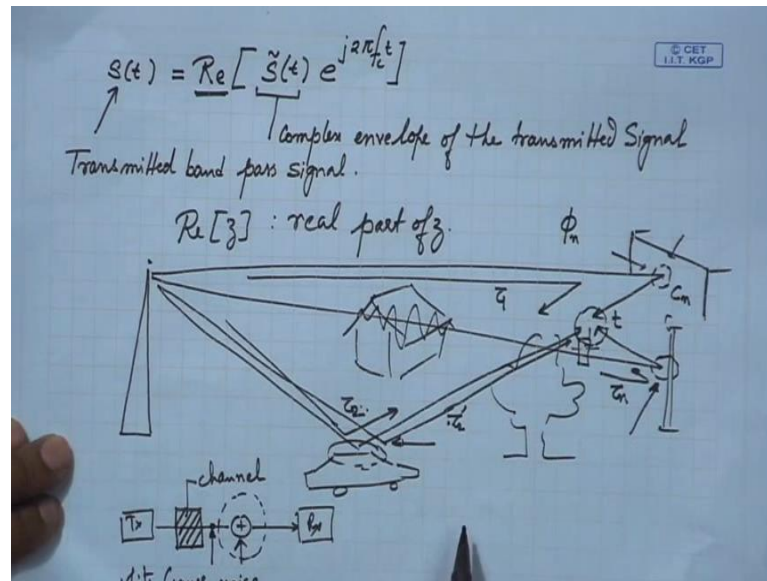 © CET
I.I.T. KGP
S(t) = Re [ s̃(t) e^{j2πf_c t} ]
Complex envelope of the transmitted Signal
Transmitted band pass signal.
Re[z] : real part of z.
ϕₙ
Cₙ
τ₁
t
τₙ
τ₂
τ₂'
channel
Tx
+